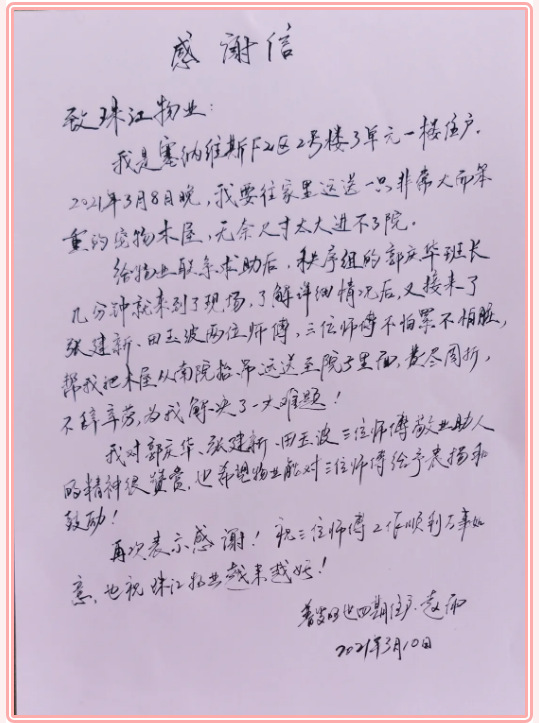 感谢信
致珠江物业：
我是塞纳维斯F2区2号楼3单元一楼住户.
2021年3月8日晚，我要往家里运送一只非常大而笨
重的宠物木屋，无奈尺寸太大进不了院.
给物业联系求助后，秩序组的郭庆华班长
几分钟就来到了现场，了解详细情况后，又接来了
张建新、田玉波两位师傅，三位师傅不怕累不怕脏，
帮我把木屋从南院抬吊运送至院子里面，费尽周折，
不辞辛劳，为我解决了一大难题！
我对郭庆华、张建新、田玉波三位师傅敬业助人
的精神很赞赏，也希望物业能对三位师傅给予表扬和
鼓励！
再次表示感谢！祝三位师傅工作顺利万事如
意，也祝珠江物业越来越好！
四期住户：赵
2021年3月10日